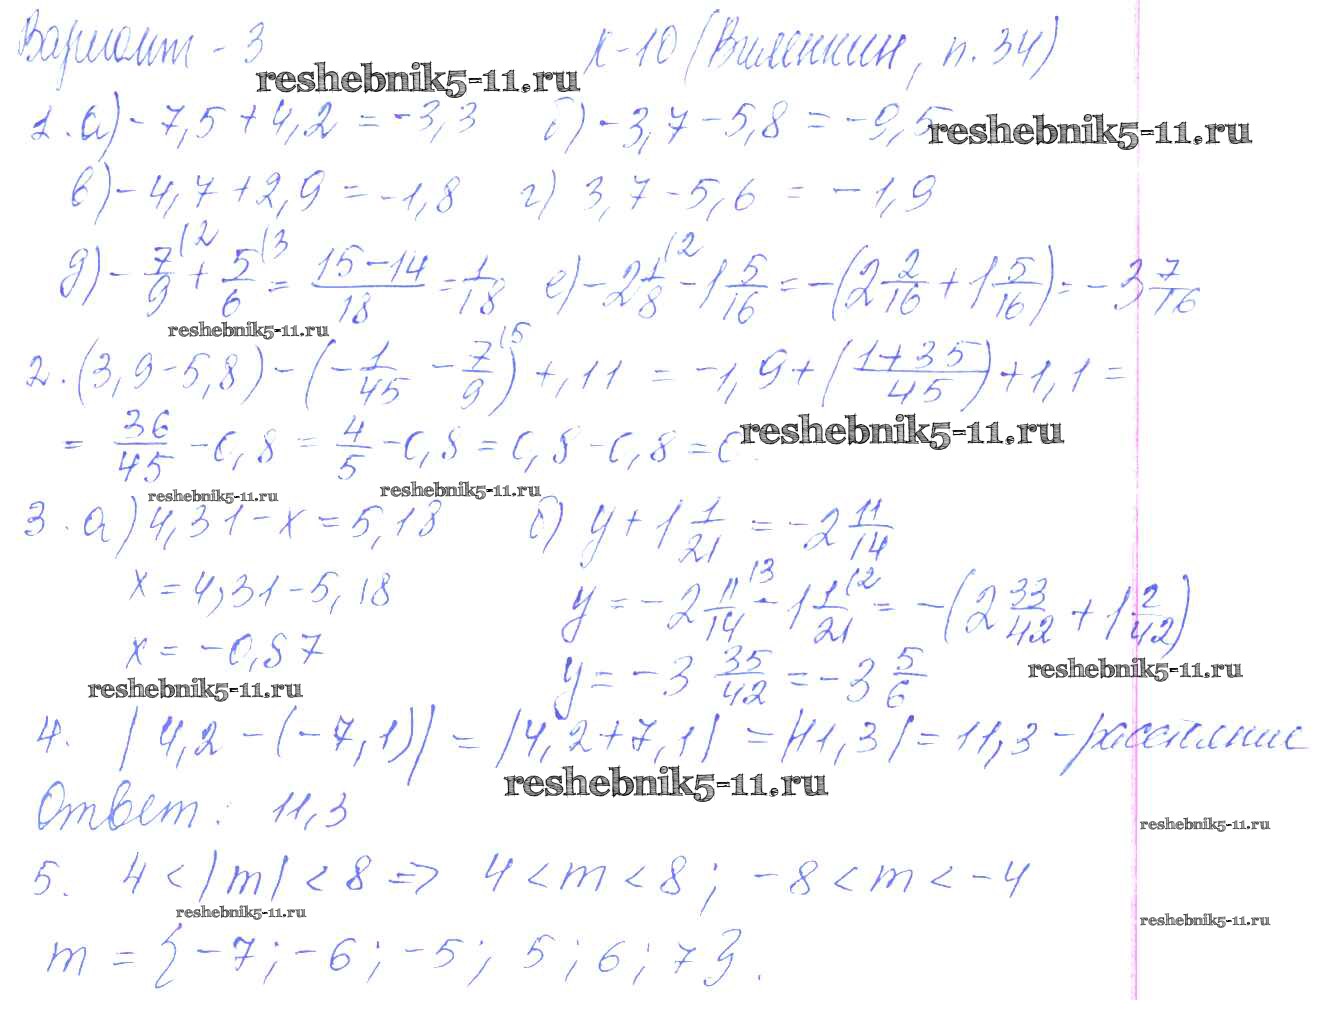 Вариант - 3 К-10 (Виленкин, п. 34)
reshebnik5-11.ru
1. а) -7,5 + 4,2 = -3,3 б) -3,7 - 5,8 = -9,5
reshebnik5-11.ru
в) -4,7 + 2,9 = -1,8 г) 3,7 - 5,6 = -1,9
д) - 7/9 (2 + 5/6 (3 = (15-14)/18 = 1/18 е) -2 1/8 (2 - 1 5/16 = -(2 2/16 + 1 5/16) = -3 7/16
reshebnik5-11.ru
2. (3,9 - 5,8) - (- 1/45 - 7/9 (5) + ,11 = -1,9 + ((1+35)/45) + 1,1 =
= 36/45 - 0,8 = 4/5 - 0,8 = 0,8 - 0,8 = 0
reshebnik5-11.ru
reshebnik5-11.ru
reshebnik5-11.ru
3. а) 4,31 - x = 5,18 б) y + 1 1/21 = -2 11/14
x = 4,31 - 5,18 y = -2 11/14 (3 - 1 1/21 (2 = -(2 33/42 + 1 2/42)
x = -0,87 y = -3 35/42 = -3 5/6
reshebnik5-11.ru
reshebnik5-11.ru
4. |4,2 - (-7,1)| = |4,2 + 7,1| = |11,3| = 11,3 - расстояние
reshebnik5-11.ru
Ответ: 11,3
reshebnik5-11.ru
5. 4 < |m| < 8 => 4 < m < 8; -8 < m < -4
reshebnik5-11.ru
reshebnik5-11.ru
m = {-7; -6; -5; 5; 6; 7}.